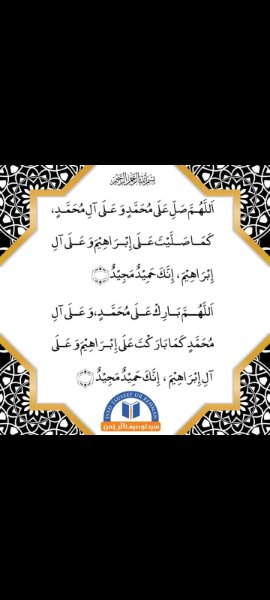 بسم الله الرحمن الرحيم
اَللّٰهُمَّ صَلِّ عَلٰى مُحَمَّدٍ وَعَلٰى آلِ مُحَمَّدٍ،
كَمَا صَلَّيْتَ عَلٰى إِبْرَاهِيْمَ وَعَلٰى آلِ
إِبْرَاهِيْمَ، إِنَّكَ حَمِيْدٌ مَجِيْدٌ
اَللّٰهُمَّ بَارِكْ عَلٰى مُحَمَّدٍ، وَعَلٰى آلِ
مُحَمَّدٍ كَمَا بَارَكْتَ عَلٰى إِبْرَاهِيْمَ وَعَلٰى
آلِ إِبْرَاهِيْمَ، إِنَّكَ حَمِيْدٌ مَجِيْدٌ
SYED TAUSEEF UR REHMAN
سید توصیف الرحمٰن